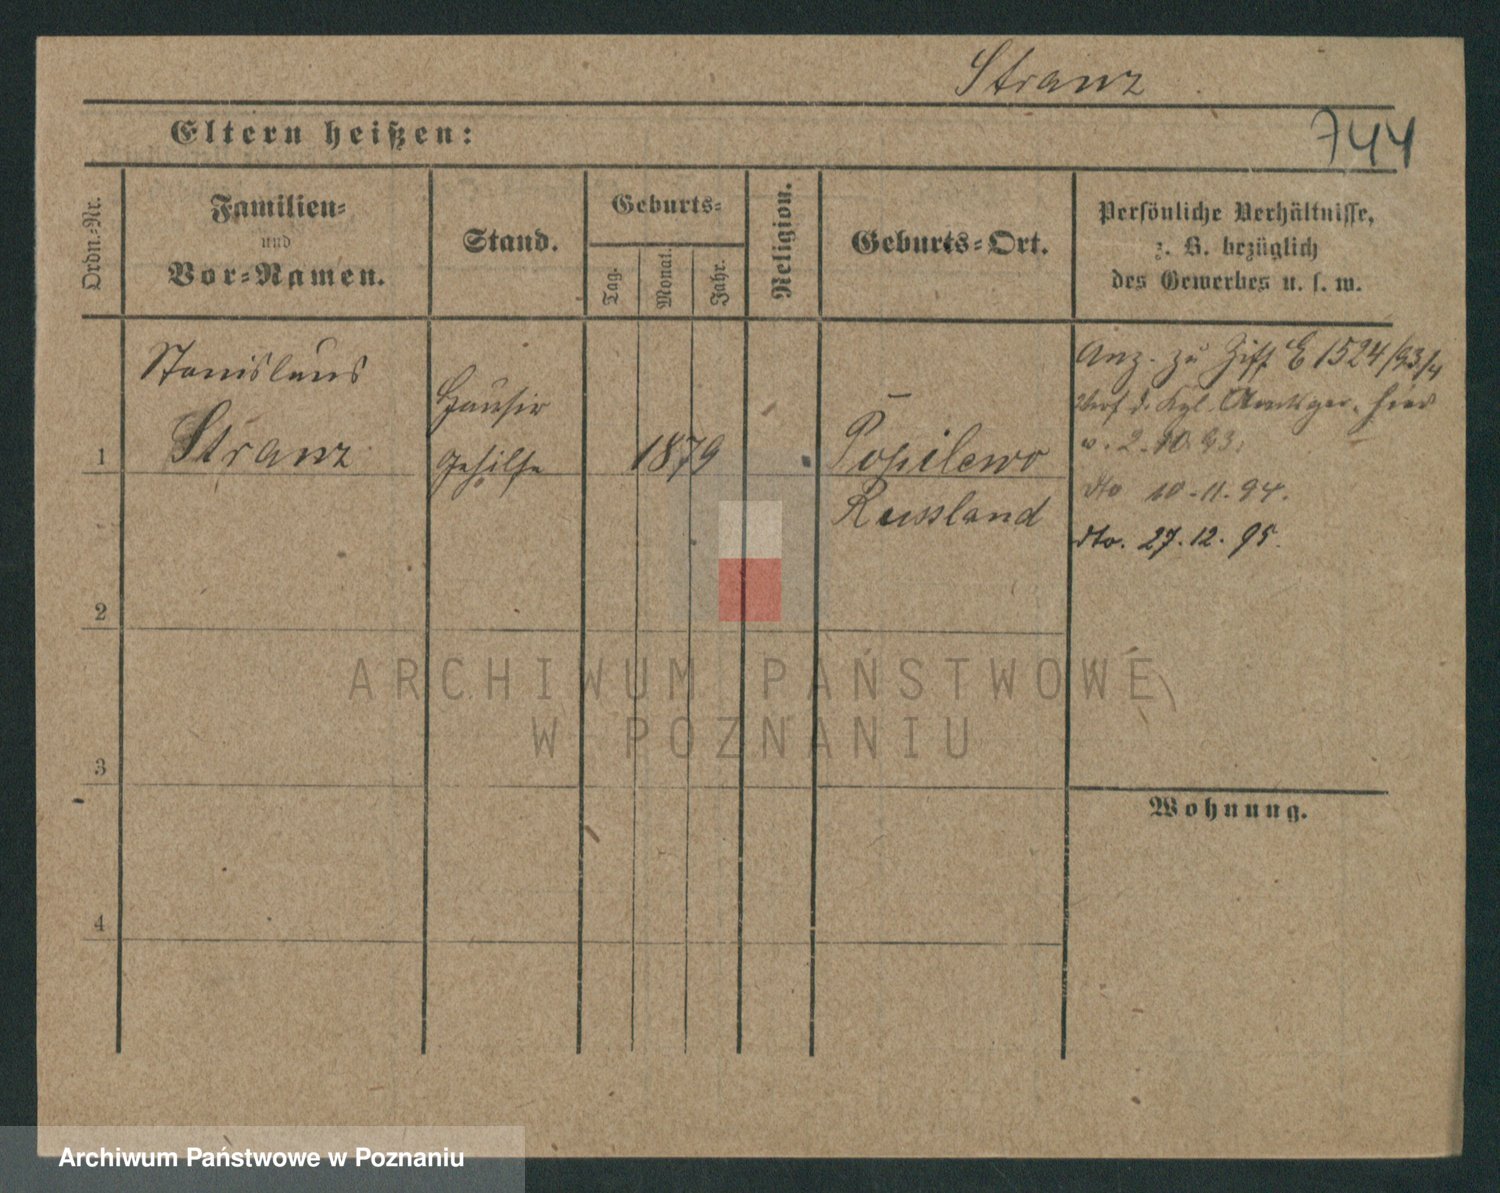 Stranz
744
Eltern heißen:
Ordn.-Nr.
Familien-
und
Vor-Namen.
Stand.
Geburts-
Tag.
Monat.
Jahr.
Religion.
Geburts-Ort.
Persönliche Verhältnisse,
z. B. bezüglich
des Gewerbes u. s. w.
Stanislaus
Stranz
Hausir
gehilfe
1
1879
Popilewo
Russland
Anz. zu E 1524/93/4
d. Kgl. Amtsger. hier
v. 2. 10. 93.
dto 10. 11. 94.
dto. 27. 12. 95.
2
3
4
Wohnung.
ARCHIWUM PAŃSTWOWE
W POZNANIU
Archiwum Państwowe w Poznaniu